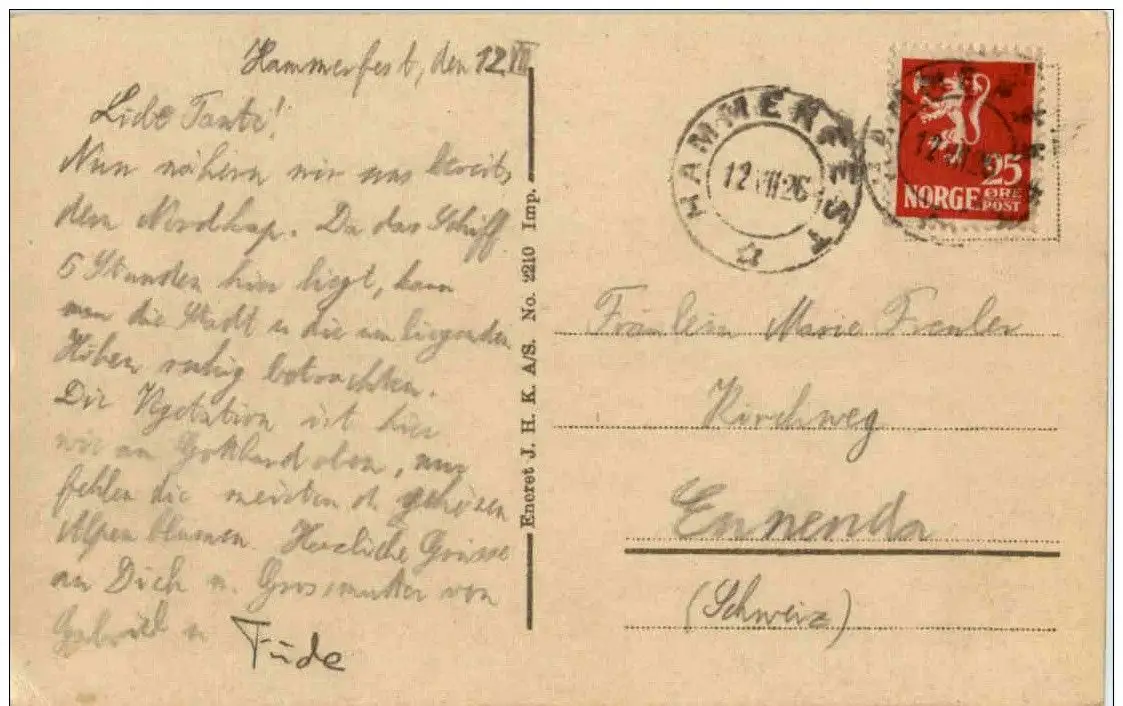 Hammerfest, den 12 VII
Liebe Tante!
Nun nähern wir uns bereits
dem Nordkap. Da das Schiff
5 Stunden hier liegt, kann
man die Stadt u die umliegenden
Höhen ruhig betrachten.
Die Vegetation ist hier
wie am Gotthard oben, nur
fehlen die meisten d. schönen
Alpenblumen. Herzliche Grüsse
an Dich u. Grossmutter von
Gabriel u
Füde
Eneret J. H. K. A/S. No. 2210 Imp.
HAMMERFEST
12 VII 26
HAMMERFEST
12 VII 26
25
NORGE ØRE
POST
Fräulein Marie Freuler
Kirchweg
Ennenda
(Schweiz)